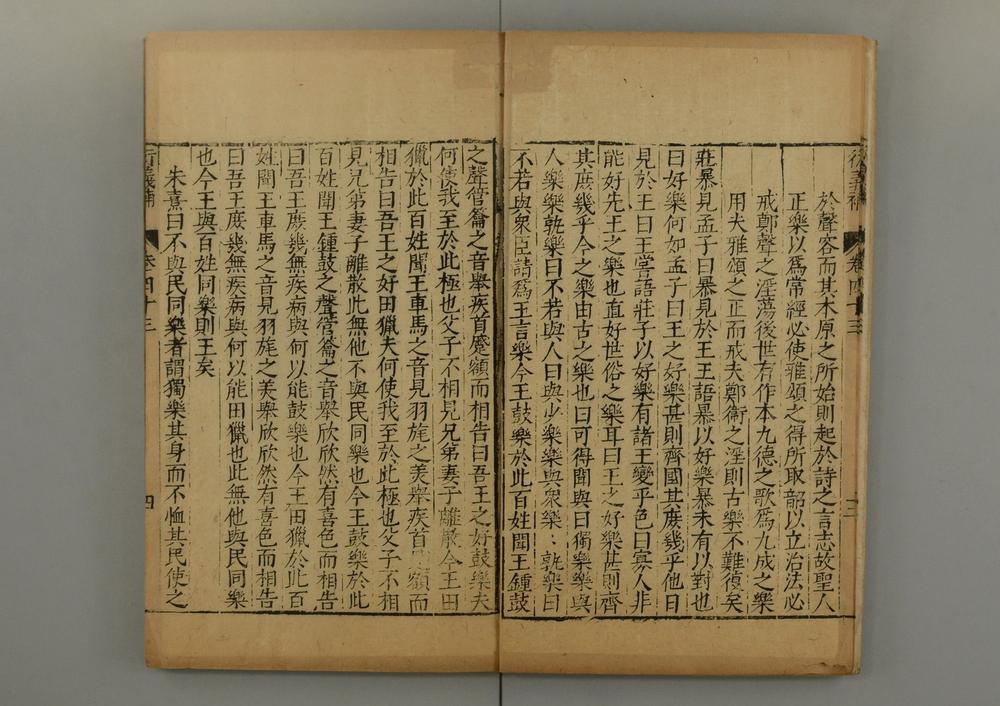 衍義補 卷四十三 三
於聲容而其本原之所始則起於詩之言志故聖人
正樂以爲常經必使雅頌之得所取韶以立治法必
戒鄭聲之淫蕩後世有作本九德之歌爲九成之樂
用大雅頌之正而戒夫鄭衛之淫則古樂不難復矣
莊暴見孟子曰暴見於王王語暴以好樂暴未有以對也
曰好樂何如孟子曰王之好樂甚則齊國其庶幾乎他日
見於王曰王嘗語莊子以好樂有諸王變乎色曰寡人非
能好先王之樂也直好世俗之樂耳曰王之好樂甚則齊
其庶幾乎今之樂由古之樂也曰可得聞與曰獨樂樂與
人樂樂孰樂曰不若與人曰與少樂樂與衆樂〻孰樂曰
不若與衆臣請爲王言樂今王鼓樂於此百姓聞王鍾鼓
之聲管籥之音舉疾首蹙頞而相告曰吾王之好鼓樂夫
何使我至於此極也父子不相見兄弟妻子離散今王田
獵於此百姓聞王車馬之音見羽旄之美舉疾首頞而
相告曰吾王之好田獵夫何使我至於此極也父子不相
見兄弟妻子離散此無他不與民同樂也今王鼓樂於此
百姓聞王鍾鼓之聲管籥之音舉欣欣然有喜色而相告
曰吾王庶幾無疾病與何以能鼓樂也今王田獵於此百
姓聞王車馬之音見羽旄之美舉欣欣然有喜色而相告
曰吾王庶幾無疾病與何以能田獵也此無他與民同樂
也今王與百姓同樂則王矣
朱熹曰不與民同樂者謂獨樂其身而不恤其民使之
衍義補 卷四十三 四